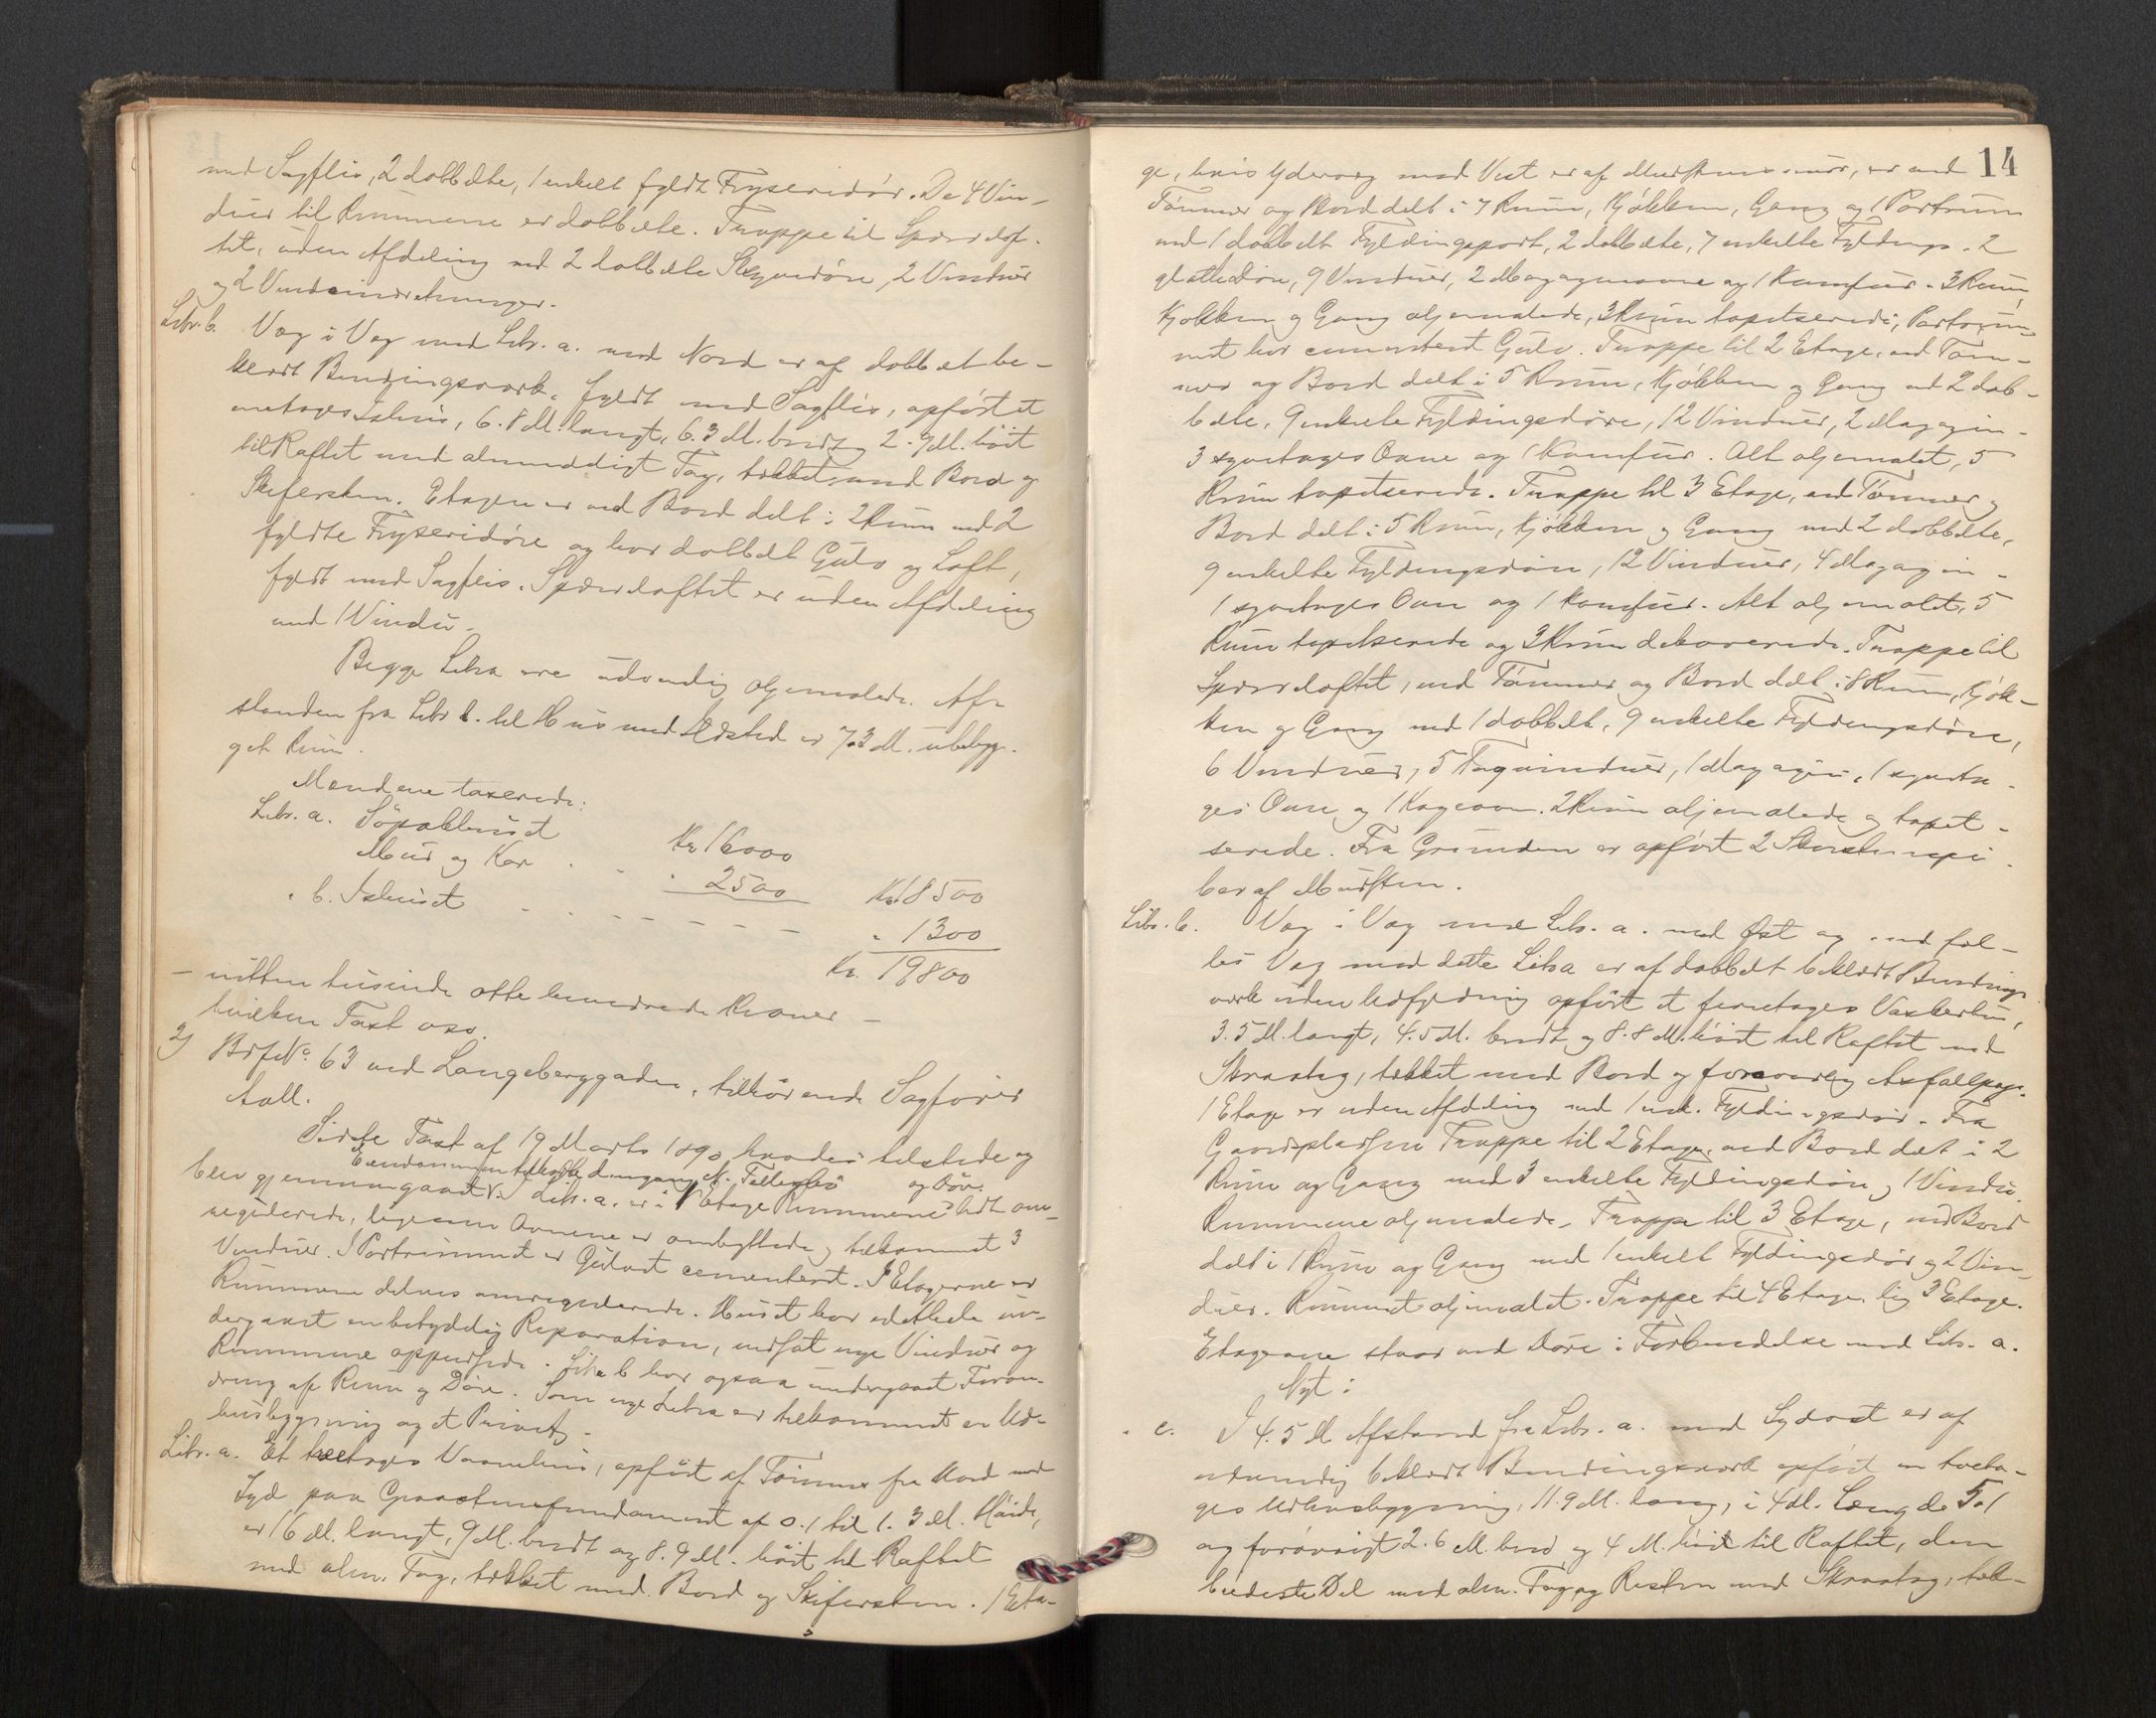 med Sagflis, 2 dobbelte, 1 enkelt fyldt Fryseridør. De 4 Vin-
duer til Rummene er dobbelte. Trappe til Sperrelof-
tet, uden Afdeling med 2 dobbelte Skyvedøre, 2 Vinduer
og 2 Vindeindretninger.
Litr. b. Væg i Væg med Litr. a. mod Nord er af dobbelt be-
klædt Bindingsverk, fyldt med Sagflis, opført et
enetages Ishus, 6.8 M. langt, 6.3 M. bredt og 2.9 M. høit
til Raftet med almindeligt Tag, tækket med Bord og
Skifersten. Etagen er ved Bord delt i 2 Rum med 2
fyldte Fryseridøre og har dobbelt Gulv og Loft,
fyldt med Sagflis. Sperreloftet er uden Afdeling
med 1 Vindu.
Begge Litra ere udvendig oljemalede. Af-
standen fra Litr b. til Hus med Ildsted er 7.3 M. ubebyg-
get Rum.
Mændene taxerede:
Litr. a. Søpakhuset Kr 16000
Mur og Kar . . . 2500 Kr. 18500
" b. Ishuset - - - - - - " 1300
Kr. 19800
- nitten tusinde otte hundrede Kroner -
hvilken Taxt osv.
2) Brf.No. 63 ved Langebryggaden, tilhørende Sagfører
Aall.
Sidste Taxt af 19 Marts 1890 havdes tilstede og
Eiendommen tilhørte dengang N. Fallesen og Søn.
blev gjennemgaaet. Litr. a. er i 1 Etage Rummene helt om-
regulerede, ligesom Ovnene er ombyttede og tilkommet 3
Vinduer. I Portrummet er Gulvet cementeret. I Etagerne er
Rummene delvis omregulerede. Huset har idethele un-
dergaaet en betydelig Reparation, indsat nye Vinduer og
Rummene oppudsede. Litra b har ogsaa undergaaet Foran-
dring af Rum og Døre. Som nye Litra er tilkommet en Ud-
husbygning og et Privet.
Litr. a. Et treetages Vaanehus, opført af Tømmer fra Nord mod
Syd paa Graastensfundament af 0.1 til 1.3 M. Høide,
er 16 M. langt, 9 M. bredt og 8.9 M. høit til Raftet
med alm. Tag, tækket med Bord og Skifersten. 1 Eta-
14
ge, hvis Ydervæg mod Vest er af Murstensmur, er ved
Tømmer og Bord delt i 7 Rum, Kjøkken, Gang og 1 Portrum
med 1 dobbelt Fyldingsport, 2 dobbelte, 7 enkelte Fyldings- 2
glatte Døre, 9 Vinduer, 2 Magasinovne og 1 Komfur. 3 Rum,
Kjøkken og Gang oljemalede, 3 Rum tapetserede, Portrum-
met har cementeret Gulv. Trappe til 2 Etage, ved Tøm-
mer og Bord delt i 5 Rum, Kjøkken og Gang med 2 dob-
belte, 9 enkelte Fyldingsdøre, 12 Vinduer, 2 Magasin-
3 syvetages Ovne og 1 Komfur. Alt oljemalet, 5
Rum tapetserede. Trappe til 3 Etage, ved Tømmer og
Bord delt i 5 Rum, Kjøkken og Gang med 2 dobbelte,
9 enkelte Fyldingsdøre, 12 Vinduer, 4 Magasin-
1 syvetages Ovn og 1 Komfur. Alt oljemalet, 5
Rum tapetserede og 3 Rum dekorerede. Trappe til
Sperreloftet, ved Tømmer og Bord delt i 8 Rum, Kjøk-
ken og Gang med 1 dobbelt, 9 enkelte Fyldingsdøre,
6 Vinduer, 5 Tagvinduer, 1 Magasin, 1 syveta-
ges Ovne og 1 Kogeovn. 2 Rum oljemalede og tapet-
serede. Fra Grunden er opført 2 Skorstenspi-
ber af Mursten.
Litr. b. Væg i Væg med Litr. a. mod Øst og med fæl-
les Væg med dette Litra er af dobbelt beklædt Bindings-
verk uden Udfyldning opført et fireetages Vaskerhus,
3.5 M. langt, 4.5 M. bredt og 8.8 M. høit til Raftet med
Skraatag, tækket med Bord og forsvarlig Asfaltpap.
1 Etage er uden Afdeling med 1 enk. Fyldingsdør. Fra
Gaardspladsen Trappe til 2 Etage, ved Bord delt i 2
Rum og Gang med 3 enkelte Fyldingsdøre og 1 Vindu.
Rummene oljemalede. Trappe til 3 Etage, ved Bord
delt i 1 Rum og Gang med 1 enkelt Fyldingsdør og 2 Vin-
duer. Rummet oljemalet. Trappe til 4 Etage, lig 3 Etage.
Etagerne staar ved Døre i Forbindelse med Litr. a.
Nyt:
" c. I 4.5 M Afstand fra Litr. a. mod Sydost er af
udvendig beklædt Bindingsverk opført en toeta-
ges Udhusbygning, 11.9 M. lang, i 4 M. Længde 5.1
og forøvrigt 2.6 M. bred og 4 M. høit til Raftet, den
bredeste Del med alm. Tag og Resten med Skraatag, tæk-